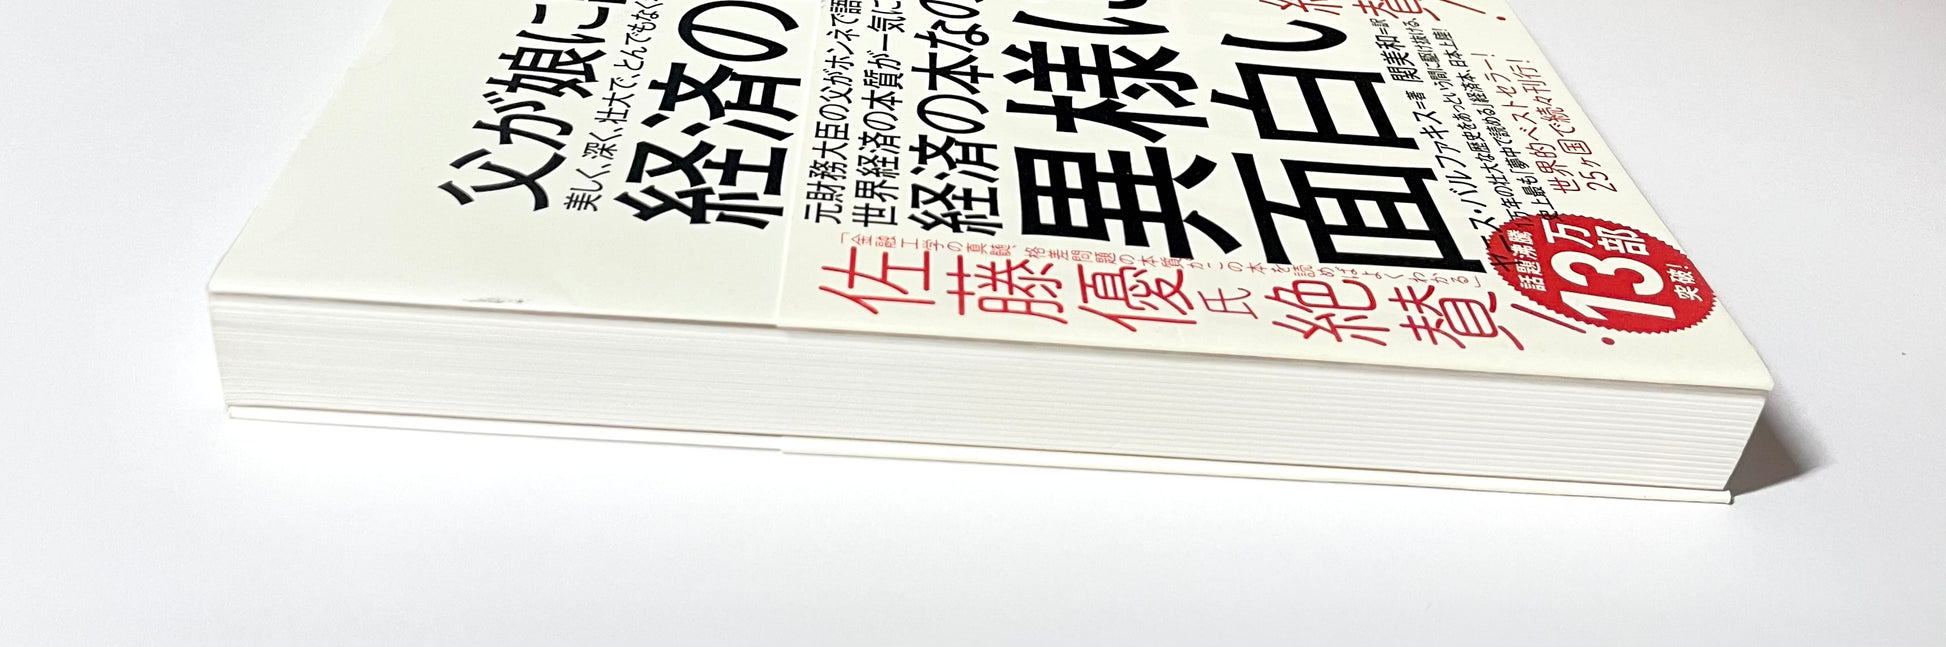 父が娘に
美しく、深く、壮大で、とんでもなく
経済の
元財務大臣の父がホンネで語
世界経済の本質が一気に
経済の本なの
異様に
面白い
「金融工学の真髄、格差問題の本質がこの本を読めばよくわかる」
佐藤優氏絶賛!
ヤニス・バルファキス=著 関美和=訳
万年の壮大な歴史をあっという間に駆け抜ける、
史上最も「夢中で読める」経済本、日本上陸!
世界的ベストセラー!
25ヶ国で続々刊行!
話題沸騰
13万部
突破!
絶賛!